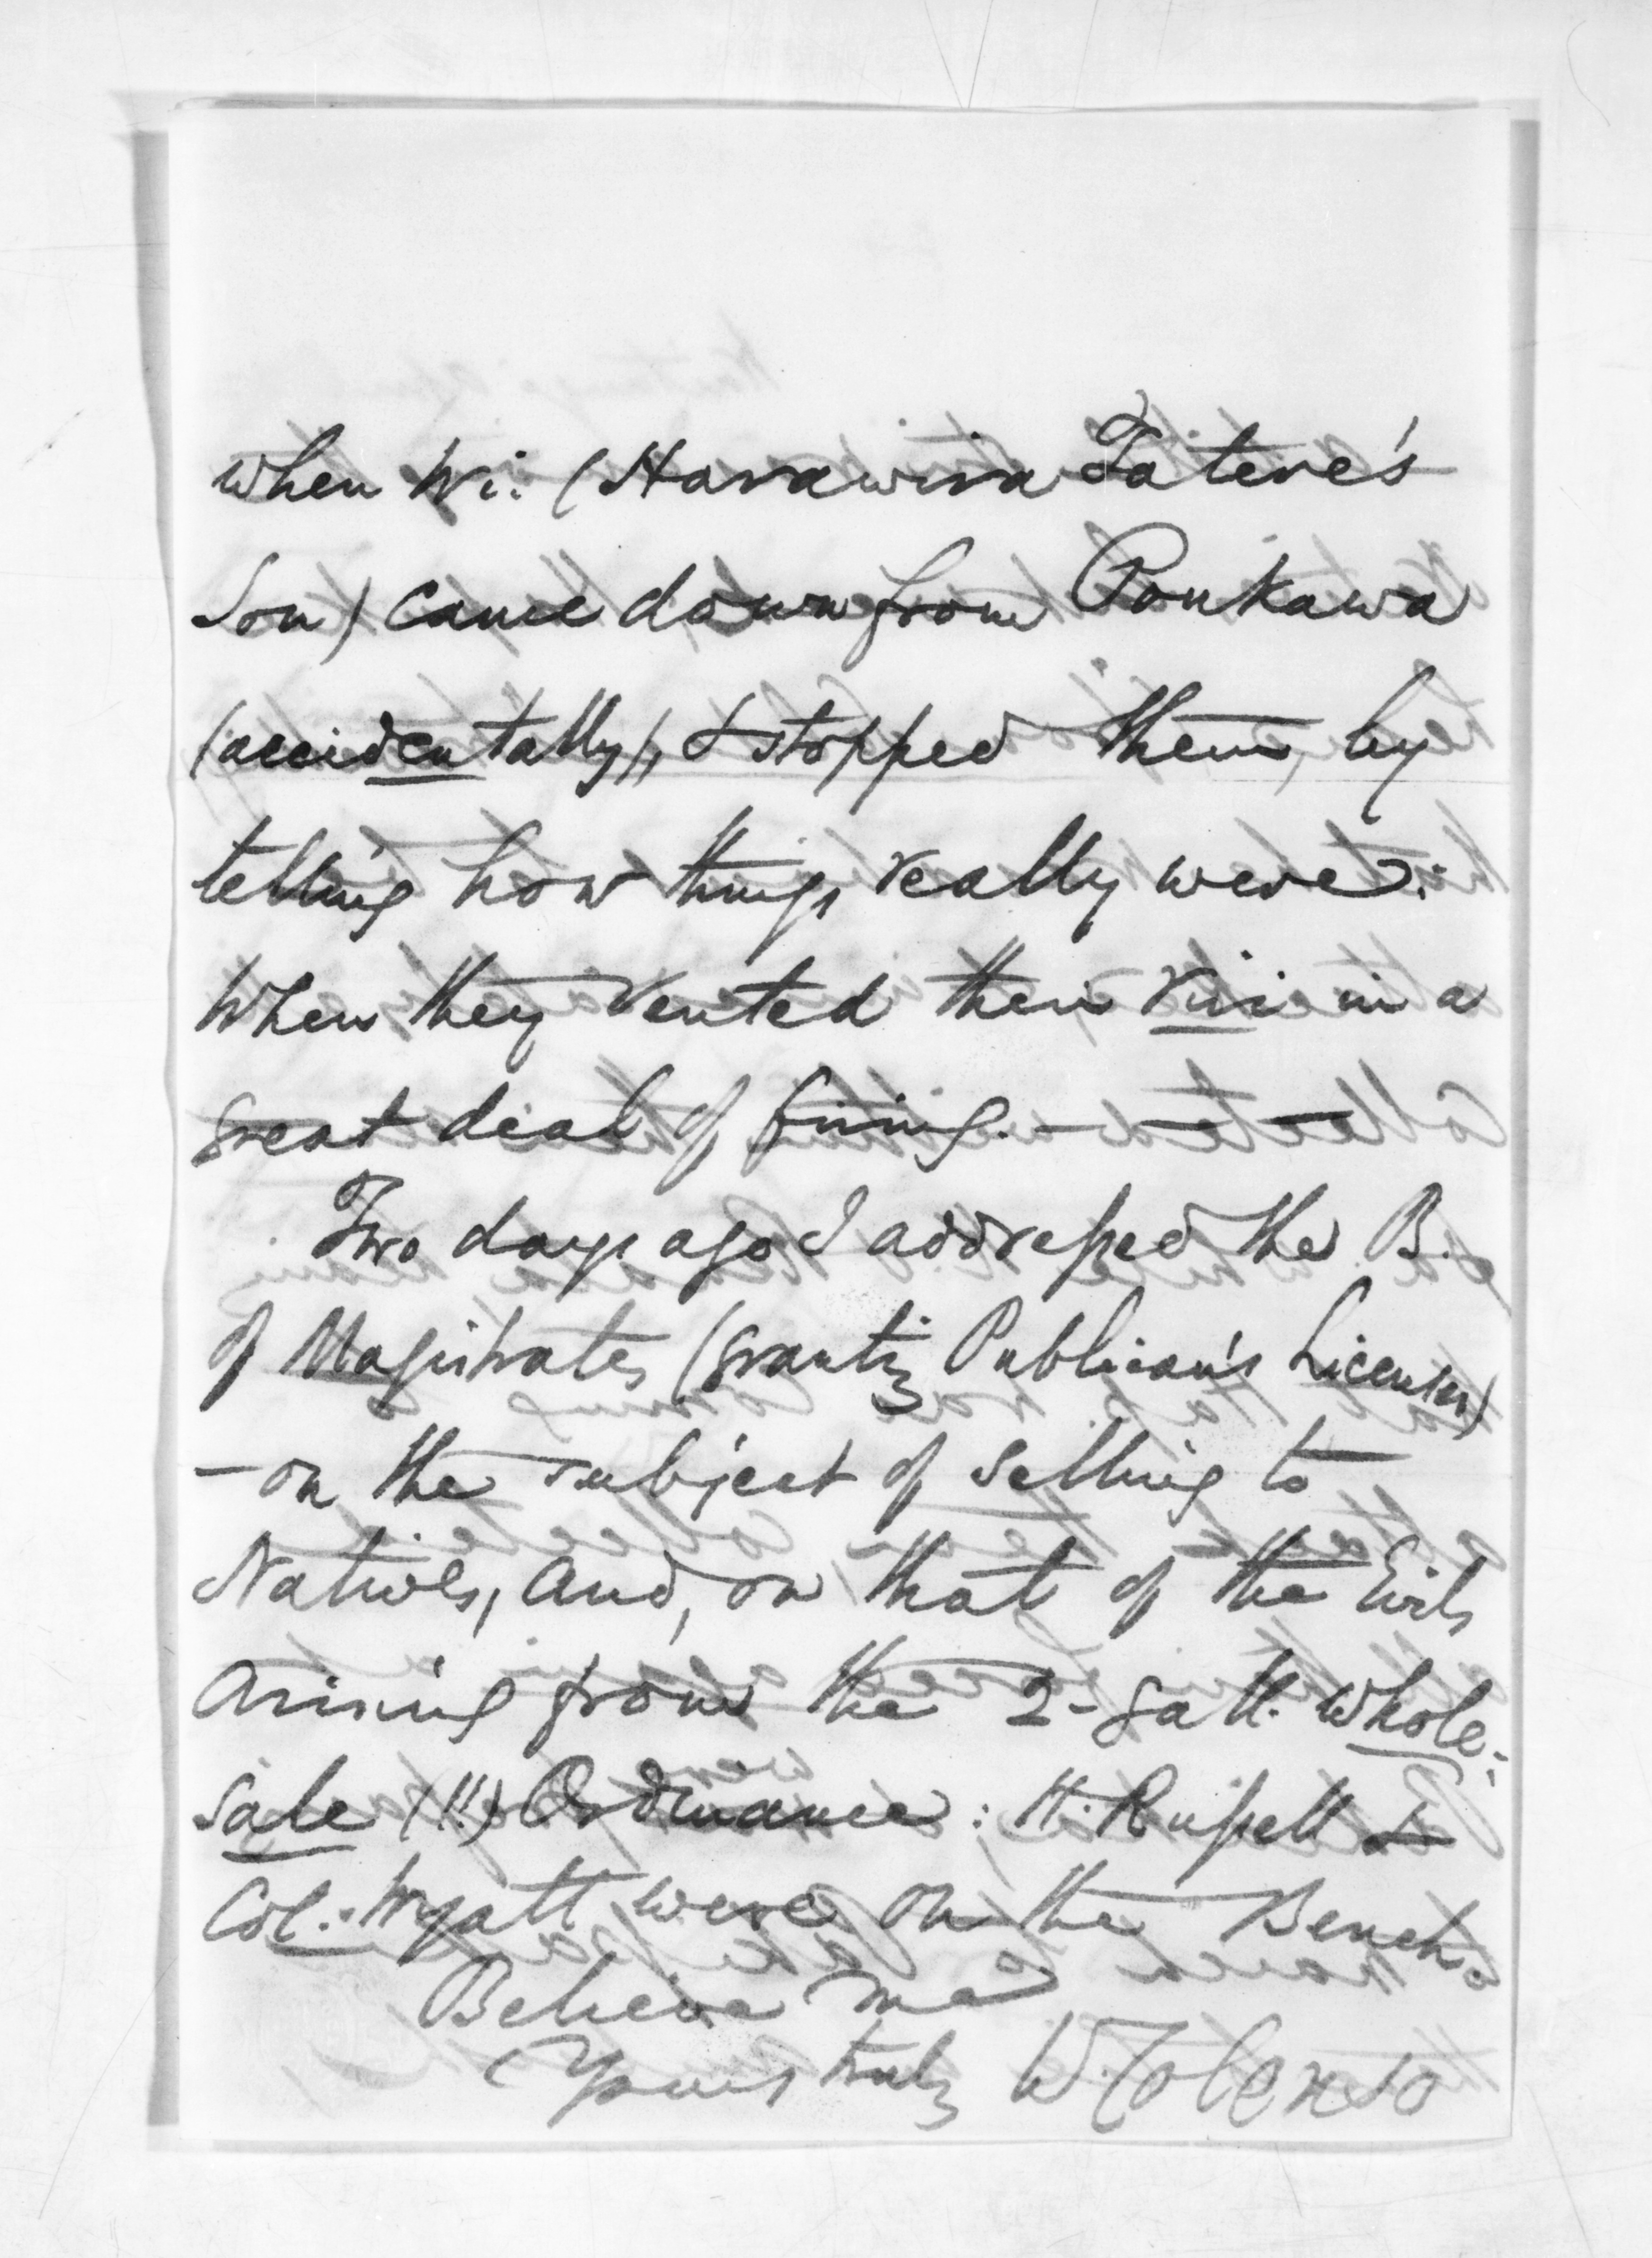 when Wi: (Harawira Tatere's
Son) came down from Poukawa
(accidentally), & stopped them, by
telling how things really were:
when they vented their riri in a
great deal of firing. — — —
Two days ago I addressed the B.
of Magistrates (grantg Publican's Licenses)
— on the subject of selling to
Natives, and, on that of the Evils
arising from the 2-gall. whole-
sale (!!) Ordinance: H. Russell &
Col: Wyatt were on the Bench.
Believe me
Yours truly W. Colenso